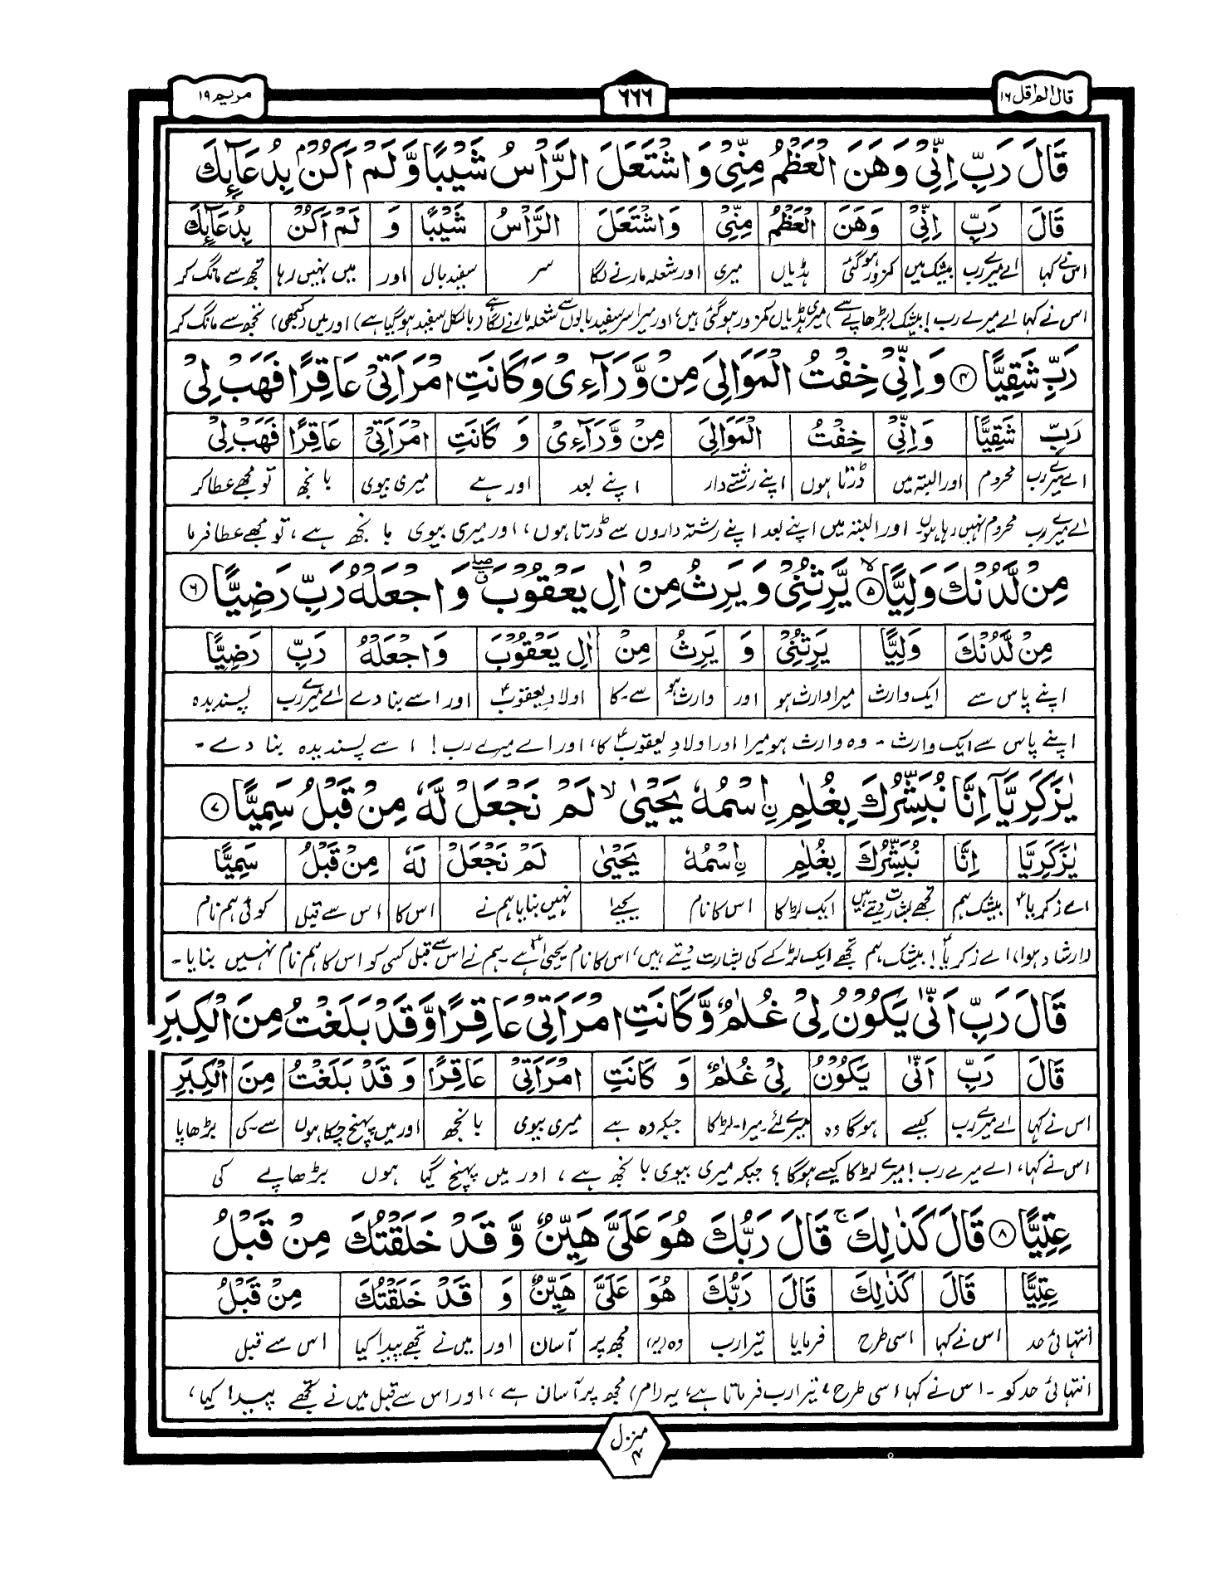 قال الم اقل ۱۶
٦٦٦
مریم ۱۹
قَالَ رَبِّ اِنِّیْ وَهَنَ الْعَظْمُ مِنِّیْ وَاشْتَعَلَ الرَّاْسُ شَیْبًا وَّلَمْ اَكُنْۢ بِدُعَآىِٕكَ
قَالَ رَبِّ اِنِّیْ وَهَنَ الْعَظْمُ مِنِّیْ وَاشْتَعَلَ الرَّاْسُ شَیْبًا وَ لَمْ اَكُنْ بِدُعَآىِٕكَ
اس نے کہا اے میرے رب بیشک میں کمزور ہو گئی ہڈیاں میری اور شعلہ مارنے لگا سر سفید بال اور میں نہیں رہا تجھ سے مانگ کر
اس نے کہا اے میرے رب! بیشک (بڑھاپے سے) میری ہڈیاں کمزور ہو گئی ہیں، اور میرا سر سفید بالوں سے شعلہ مارنے لگا ہے (بالکل سفید ہو گیا ہے) اور میں (کبھی) تجھ سے مانگ کر
رَبِّ شَقِیًّا ۴ وَاِنِّیْ خِفْتُ الْمَوَالِیَ مِنْ وَّرَآءِیْ وَكَانَتِ امْرَاَتِیْ عَاقِرًا فَهَبْ لِیْ
رَبِّ شَقِیًّا وَاِنِّیْ خِفْتُ الْمَوَالِیَ مِنْ وَّرَآءِیْ وَ كَانَتِ امْرَاَتِیْ عَاقِرًا فَهَبْ لِیْ
اے میرے رب محروم اور البتہ میں ڈرتا ہوں اپنے رشتے دار اپنے بعد اور ہے میری بیوی بانجھ تو مجھے عطا کر
اے میرے رب محروم نہیں رہا ہوں۔ اور البتہ میں اپنے بعد اپنے رشتہ داروں سے ڈرتا ہوں، اور میری بیوی بانجھ ہے، تو مجھے عطا فرما
مِنْ لَّدُنْكَ وَلِیًّا ۵ۙ یَّرِثُنِیْ وَیَرِثُ مِنْ اٰلِ یَعْقُوْبَ ۖۗ وَاجْعَلْهُ رَبِّ رَضِیًّا ۶
مِنْ لَّدُنْكَ وَلِیًّا یَرِثُنِیْ وَ یَرِثُ مِنْ اٰلِ یَعْقُوْبَ وَاجْعَلْهُ رَبِّ رَضِیًّا
اپنے پاس سے ایک وارث میرا وارث ہو اور وارث ہو سے۔کا اولادِ یعقوبؑ اور اسے بنا دے اے میرے رب پسندیدہ
اپنے پاس سے ایک وارث۔ وہ وارث ہو میرا اور اولادِ یعقوبؑ کا، اور اے میرے رب! اسے پسندیدہ بنا دے۔
یٰزَكَرِیَّاۤ اِنَّا نُبَشِّرُكَ بِغُلٰمِ ن ِاسْمُهٗ یَحْیٰی ۙ لَمْ نَجْعَلْ لَّهٗ مِنْ قَبْلُ سَمِیًّا ۷
یٰزَكَرِیَّا اِنَّا نُبَشِّرُكَ بِغُلٰمِ نِ اسْمُهٗ یَحْیٰی لَمْ نَجْعَلْ لَهٗ مِنْ قَبْلُ سَمِیًّا
اے زکریاؑ بیشک ہم تجھے بشارت دیتے ہیں ایک لڑکا اس کا نام یحییٰ نہیں بنایا ہم نے اس کا اس سے قبل کوئی ہم نام
(ارشاد ہوا) اے زکریاؑ! بیشک ہم تجھے ایک لڑکے کی بشارت دیتے ہیں، اس کا نام یحییٰؑ ہے۔ ہم نے اس سے قبل کسی کو اس کا ہم نام نہیں بنایا۔
قَالَ رَبِّ اَنّٰی یَكُوْنُ لِیْ غُلٰمٌ وَّكَانَتِ امْرَاَتِیْ عَاقِرًا وَّقَدْ بَلَغْتُ مِنَ الْكِبَرِ
قَالَ رَبِّ اَنّٰی یَكُوْنُ لِیْ غُلٰمٌ وَ كَانَتِ امْرَاَتِیْ عَاقِرًا وَ قَدْ بَلَغْتُ مِنَ الْكِبَرِ
اس نے کہا اے میرے رب کیسے ہو گا وہ میرے لئے۔میرا۔لڑکا جبکہ وہ ہے میری بیوی بانجھ اور میں پہنچ چکا ہوں سے۔کی بڑھاپا
اس نے کہا، اے میرے رب! میرے لڑکا کیسے ہو گا؟ جبکہ میری بیوی بانجھ ہے، اور میں پہنچ گیا ہوں بڑھاپے کی
عِتِیًّا ۸ قَالَ كَذٰلِكَ ۚ قَالَ رَبُّكَ هُوَ عَلَیَّ هَیِّنٌ وَّ قَدْ خَلَقْتُكَ مِنْ قَبْلُ
عِتِیًّا قَالَ كَذٰلِكَ قَالَ رَبُّكَ هُوَ عَلَیَّ هَیِّنٌ وَ قَدْ خَلَقْتُكَ مِنْ قَبْلُ
انتہائی حد اس نے کہا اسی طرح فرمایا تیرا رب وہ (یہ) مجھ پر آسان اور میں نے تجھے پیدا کیا اس سے قبل
انتہائی حد کو۔ اس نے کہا اسی طرح، تیرا رب فرماتا ہے، یہ (امر) مجھ پر آسان ہے، اور اس سے قبل میں نے تجھے پیدا کیا،
منزل ۴